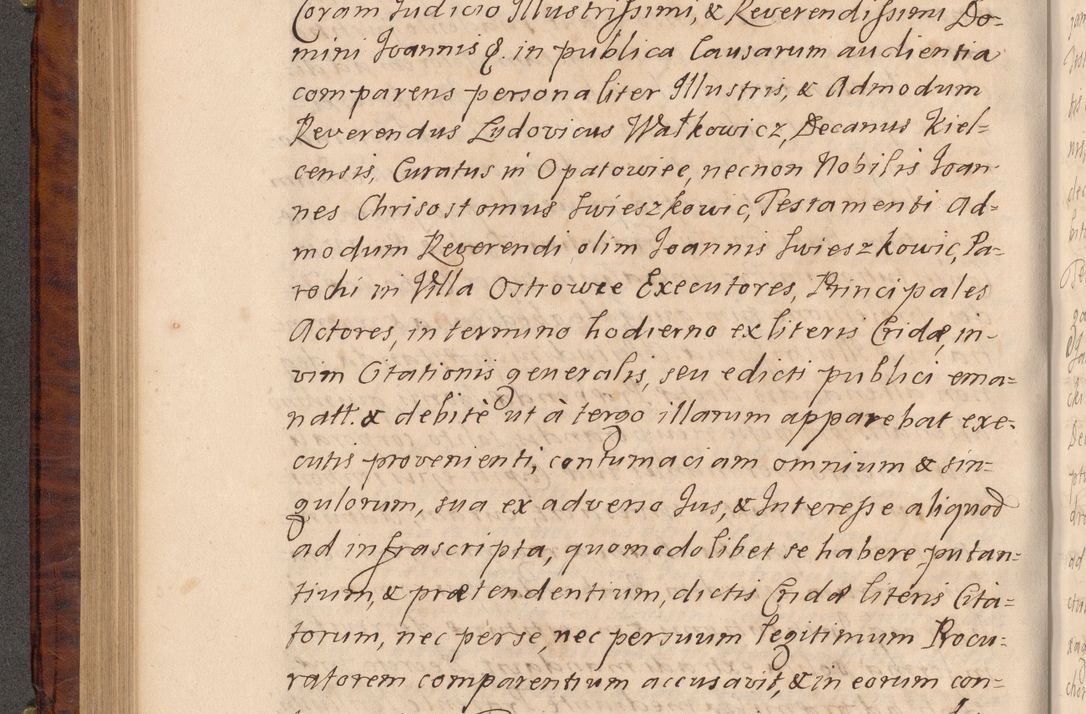 Coram Iudicio Illustrissimi, & Reverendissimi Do=
mini Ioannis &. in publica Causarum audientia
comparens personaliter Illustris, & Admodum
Reverendus Ludovicus Watkowicz, Decanus Kiel=
censis, Curatus in Opatowiec, necnon Nobilis Ioan
nes Chrisostomus Swieszkowic, Testamenti Ad=
modum Reverendi olim Ioannis Swieszkowic, Pa=
rochi in Villa Ostrowce Executores, Principales
Actores, in termino hodierno ex literis Cridæ, in
vim Citationis generalis, seu edicti publici ema=
natt. & debitè ut à tergo illarum apparebat exe=
cutis provenienti, contumaciam omnium & sin=
gulorum, sua ex adverso Ius, & Interesse aliquod
ad infrascripta, quomodolibet se habere putan=
tium, & prætendentium, dictis Cridæ literis Cita=
torum, nec per se, nec per suum legitimum Procu=
ratorem comparentium accusavit, & in eorum con=